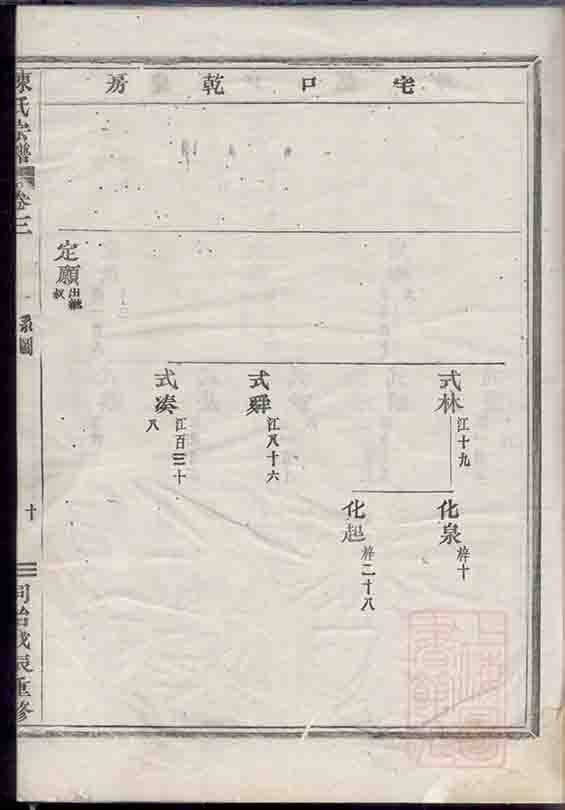 宅口乾房
式林
江十九
化泉
梓十
化起
梓二十八
式舜
江八十六
式湊
江百三十八
定願
出繼叔
陳氏宗譜
卷三
系圖
十
同治戊辰重修